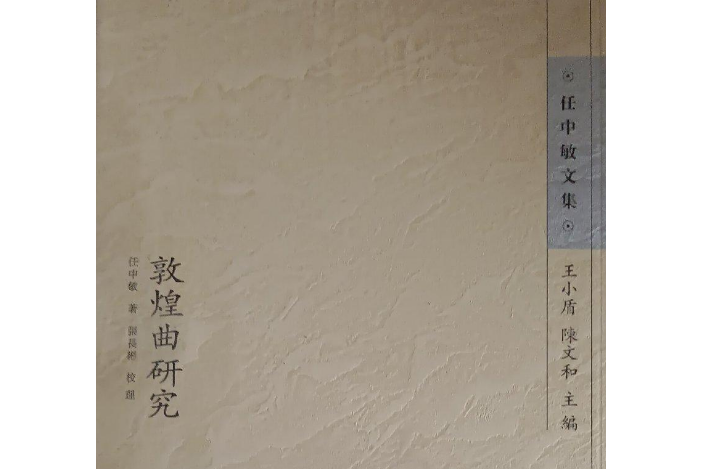 任中敏文集
王小盾 陳文和 主編
敦煌曲研究
任中敏 著 張長彬 校理